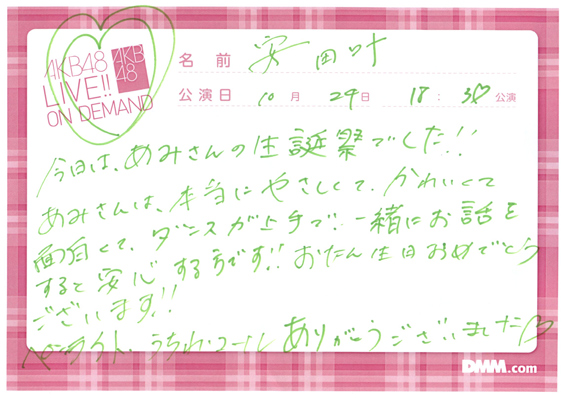 AKB48
LIVE!!
ON DEMAND
AKB
48
名前 安田叶
公演日 10月29日 18:30公演
今日は、あみさんの生誕祭でした!!
あみさんは、本当にやさしくて、かわいくて
面白くて、ダンスが上手で、一緒にお話を
すると安心する方です!! おたん生日おめでとう
ございます!!
ペンライト、うちわ、コール ありがとうございました♡
DMM.com